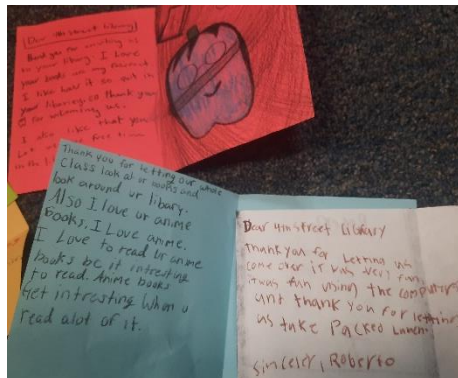 Dear 4th Street Library
Thank you for inviting us
to your library. I Love
your books
I like how it so quit in
your library so thank you
for welcoming us.
I also like that you
Let us free time
in the
Thank you for Letting our whole
class look at ur books and
look around ur libary.
Also I love ur anime
Books. I Love anime.
I Love to read ur anime
books be it intresting
to read. Anime books
get intresting when u
read alot of it.
Dear 4th Street Library
Thank you for Letting us
come over it was very fun,
it was fun using the computers
ant thank you for letting
us take Packed Lunch.
Sinceler, Roberto